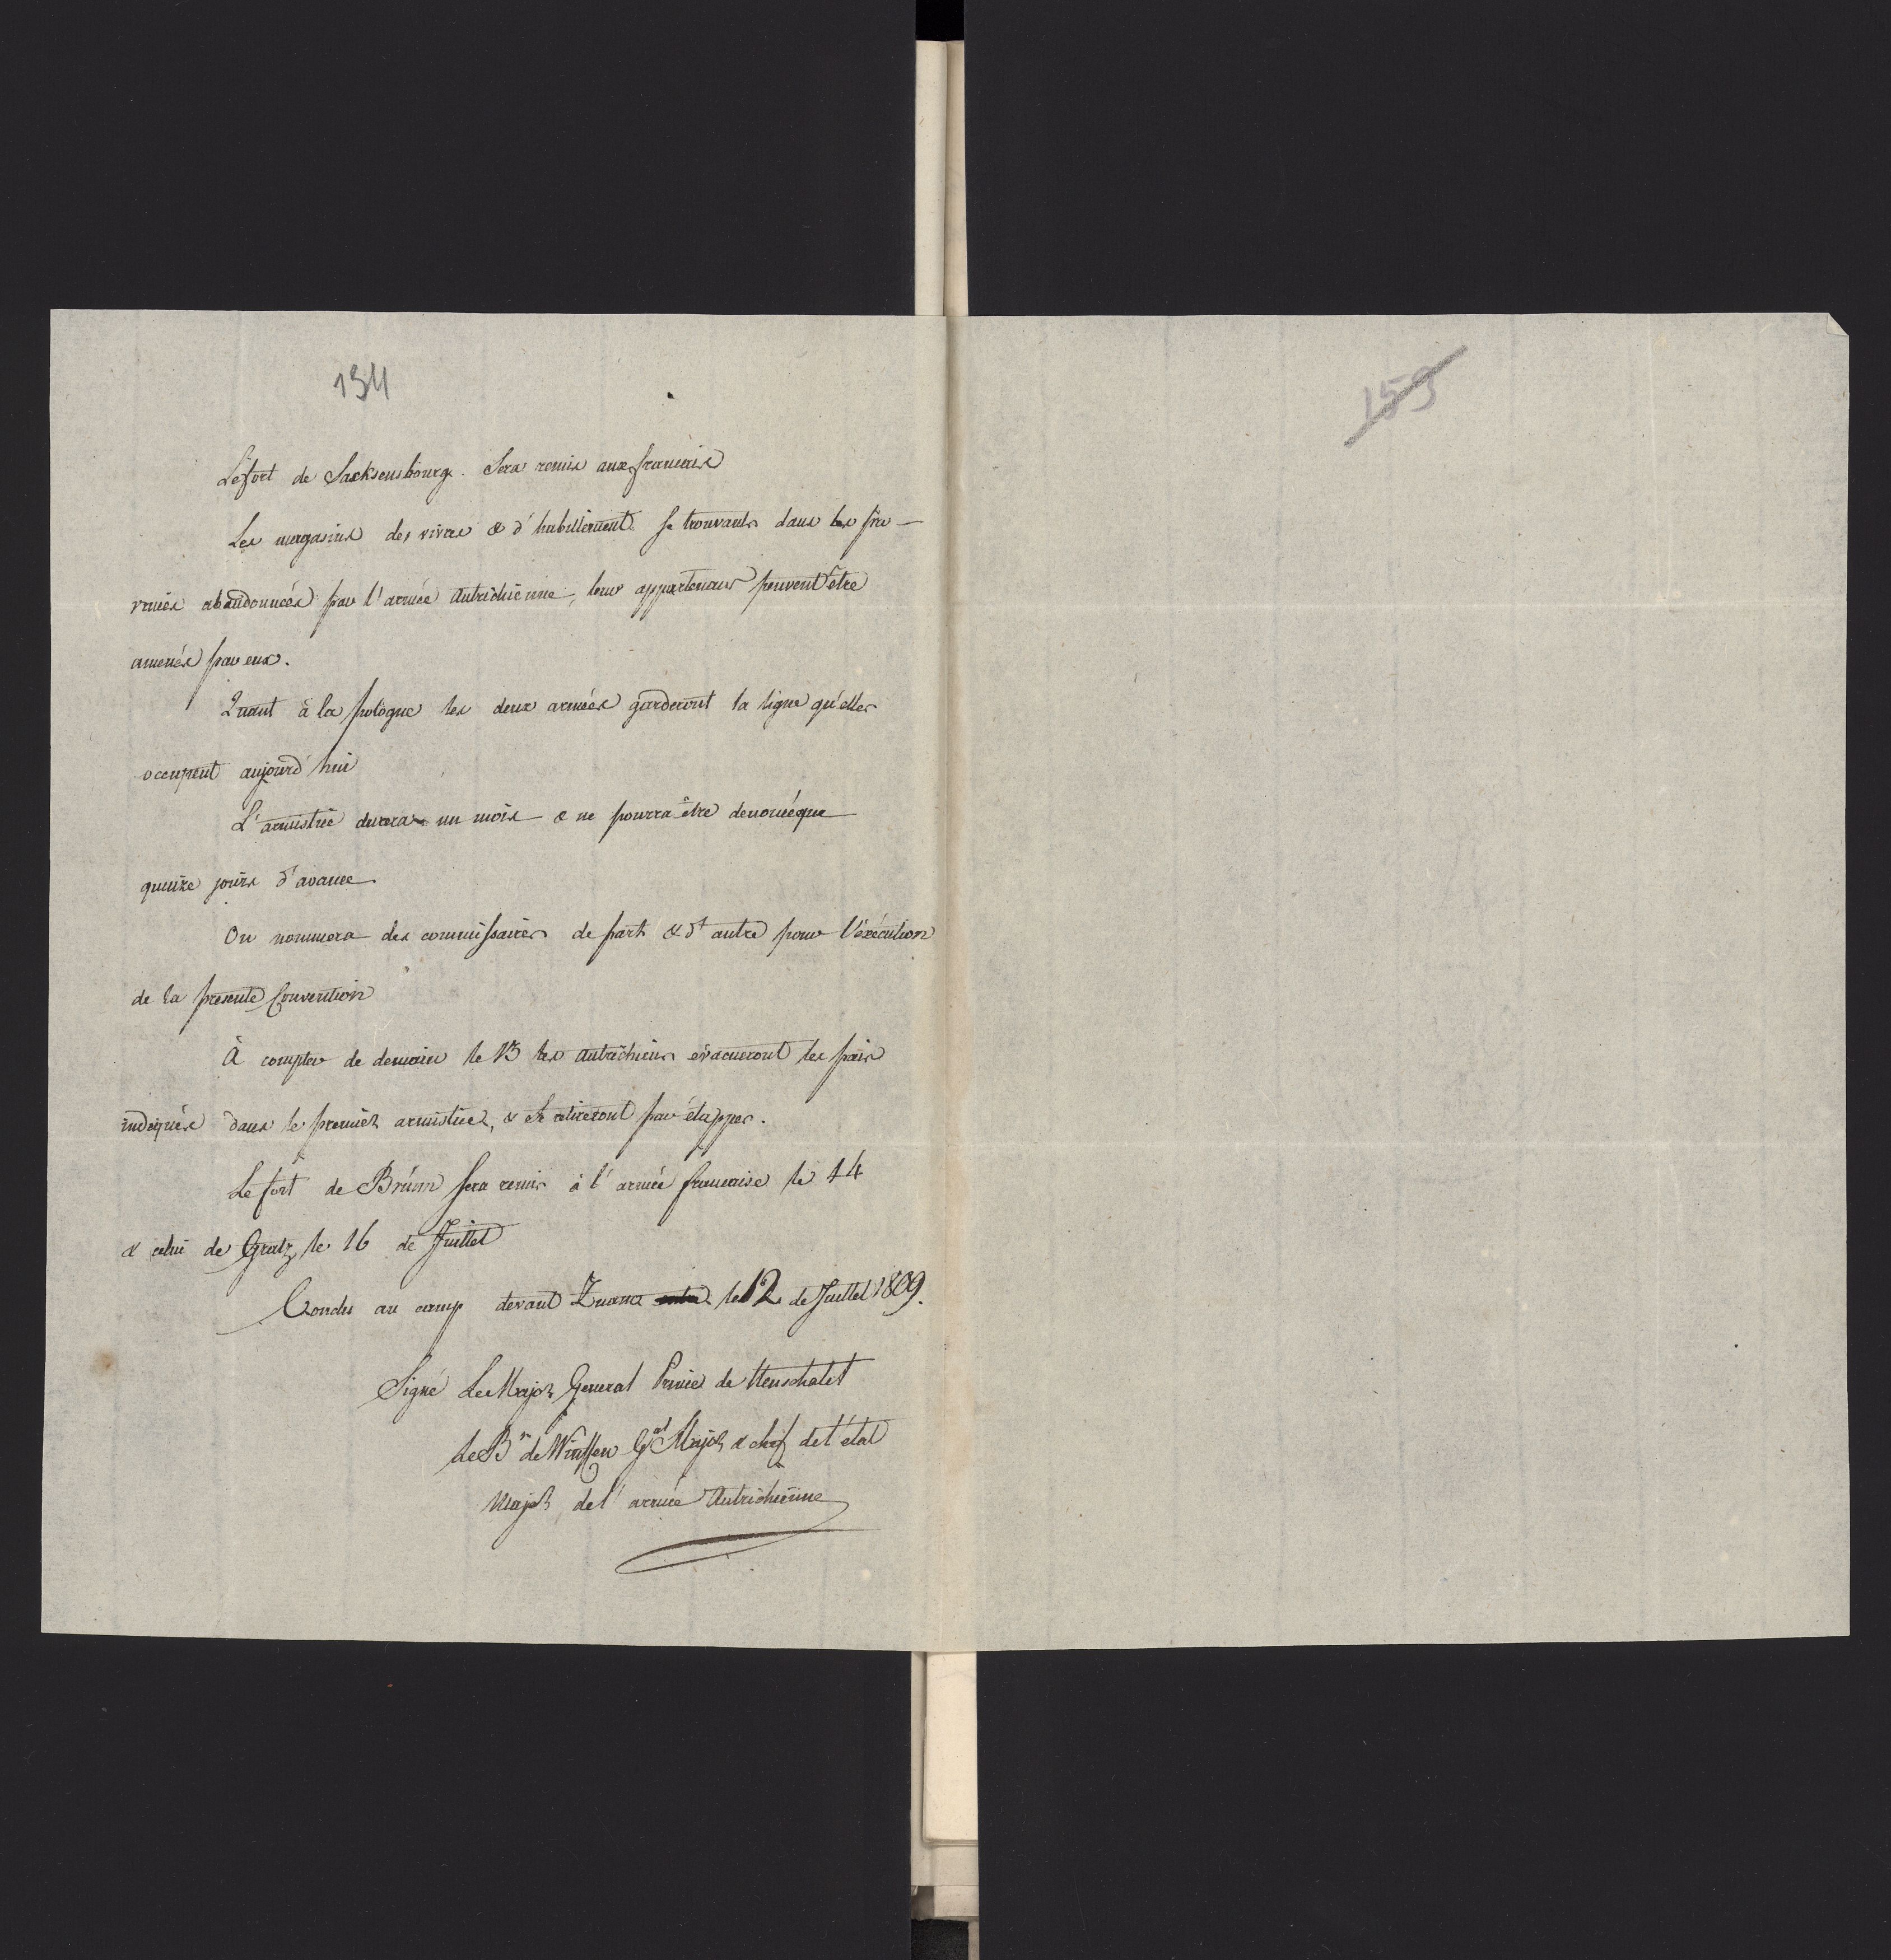 134
159
Le fort de Sacksensbourg. Sera remis aux francais
Les magasins des vivres & d'habillement se trouvants dans les pro-
vinces abandonnées par l'armée Autrichienne, leur appartenans peuvent être
amenés par eux.
Quant à la pologne les deux armées garderont la ligne qu'elles
occupent aujourd'hui
L'armistice durera un mois & ne pourra être denoncé que
quinze jours d'avance
On nommera des commissaires de part & d'autre pour l'exécution
de la presente Convention
À compter de demain le 13 les Autrichiens évacueront les païs
indiqués dans le premier armistice, & se retireront par étappes.
Le fort de Brünn sera remis à l'armée francaise le 14
& celui de Gratz le 16 de Juillet
Conclu au camp devant Znama le 12 de Juillet 1809.
Signé Le Major General Prince de Neuschatel
le Bn de Wimpffen Gal Major & chef de l'état
Major de l'armée Autrichienne